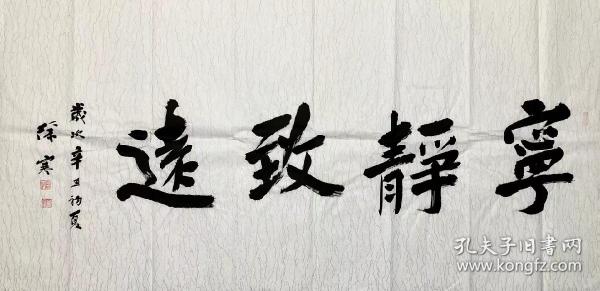 寧靜致遠
歲次辛丑初夏
徐寒
孔夫子旧书网
www.kongfz.com